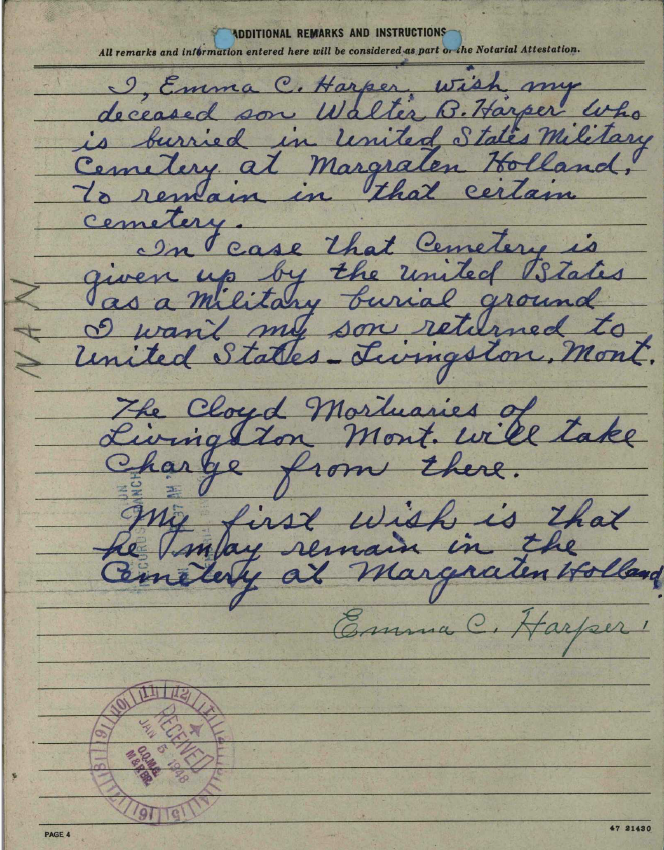 ADDITIONAL REMARKS AND INSTRUCTIONS
All remarks and information entered here will be considered as part of the Notarial Attestation.
I, Emma C. Harper, wish my
deceased son Walter B. Harper who
is burried in United States Military
Cemetery at Margraten Holland,
to remain in that certain
cemetery.
In case that Cemetery is
given up by the United States
as a Military burial ground
I want my son returned to
United States - Livingston, Mont.
The Cloyd Mortuaries of
Livingston Mont. will take
Charge from there.
My first wish is that
he may remain in the
Cemetery at Margraten Holland.
Emma C. Harper
NAN
RECORDS BRANCH
AM
RECEIVED
JAN 5 1948
O.Q.M.G.
M & R BR.
9 10 11 12 1
PAGE 4
47 21420